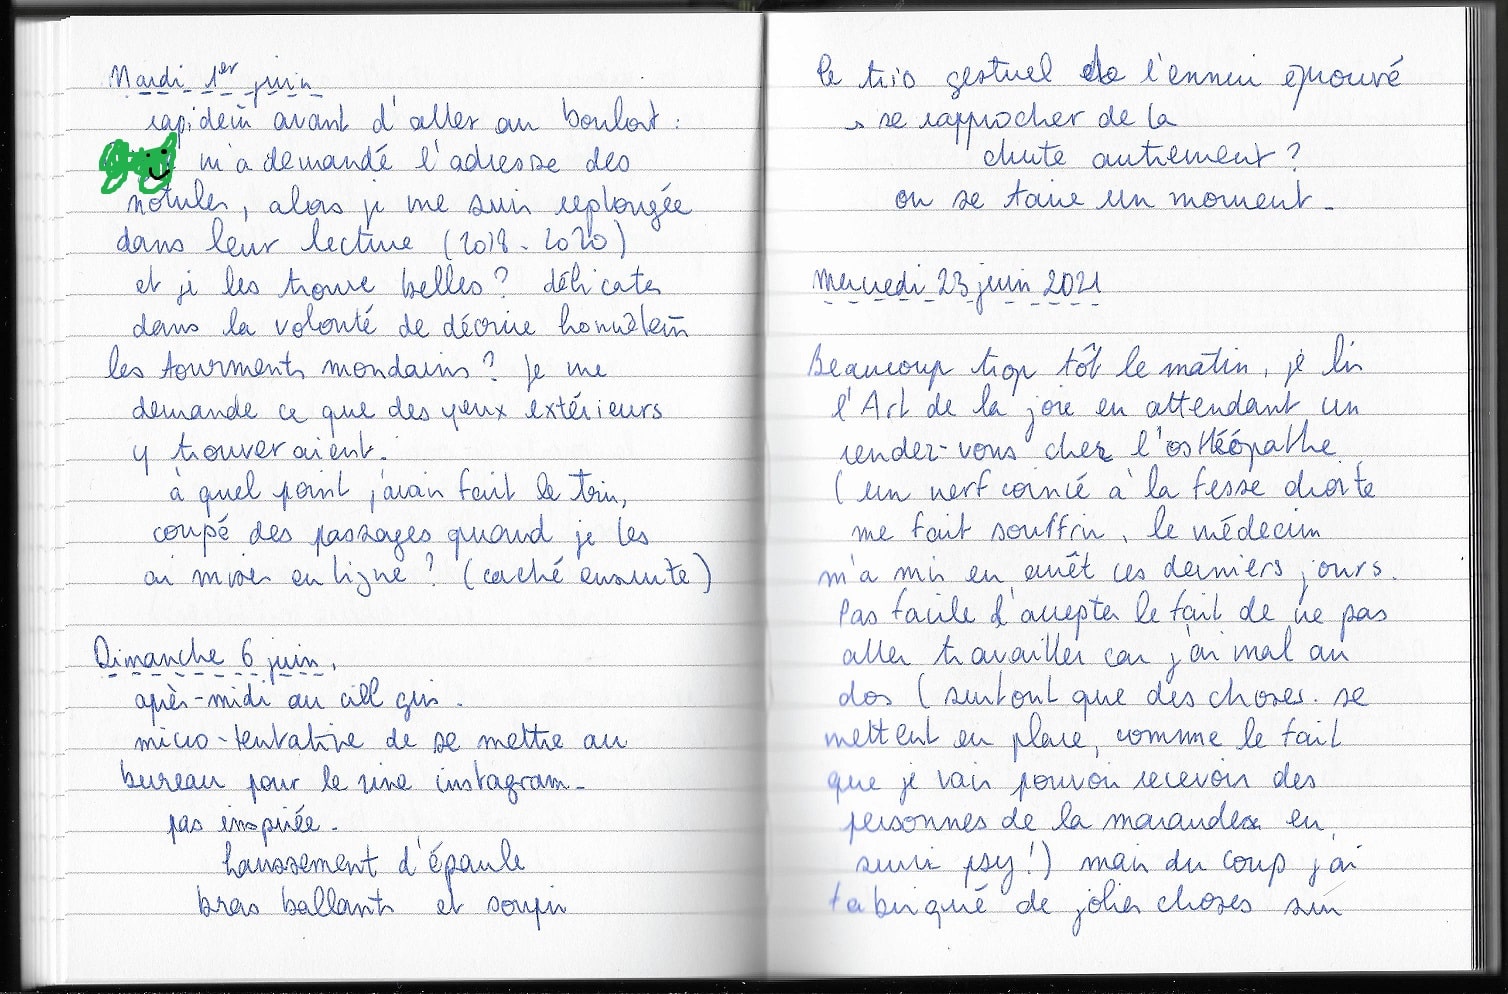 Mardi 1er juin
rapidem̄ avant d'aller au boulot :
m'a demandé l'adresse des
notules, alors je me suis replongée
dans leur lecture (2018-2020)
et je les trouve belles ? délicates
dans la volonté de décrire honnêtem̄
les tourments mondains ? Je me
demande ce que des yeux extérieurs
y trouveraient.
à quel point j'avais fait le tri,
coupé des passages quand je les
ai mises en ligne ? (caché ensuite)
Dimanche 6 juin,
après-midi au ciel gris.
micro-tentative de se mettre au
bureau pour le zine instagram-
pas inspirée.
haussement d'épaule
bras ballants et soupir
le trio gestuel de l'ennui éprouvé
→ se rapprocher de la
chute autrement ?
on se taire un moment.
Mercredi 23 juin 2021
Beaucoup trop tôt le matin, je lis
l'Art de la joie en attendant un
rendez-vous chez l'ostéopathe
(un nerf coincé à la fesse droite
me fait souffrir, le médecin
m'a mis en arrêt ces derniers jours.
Pas facile d'accepter le fait de ne pas
aller travailler car j'ai mal au
dos (surtout que des choses se
mettent en place, comme le fait
que je vais pouvoir recevoir des
personnes de la maraude en
suivi psy !) mais du coup j'ai
fabriqué de jolies choses sur